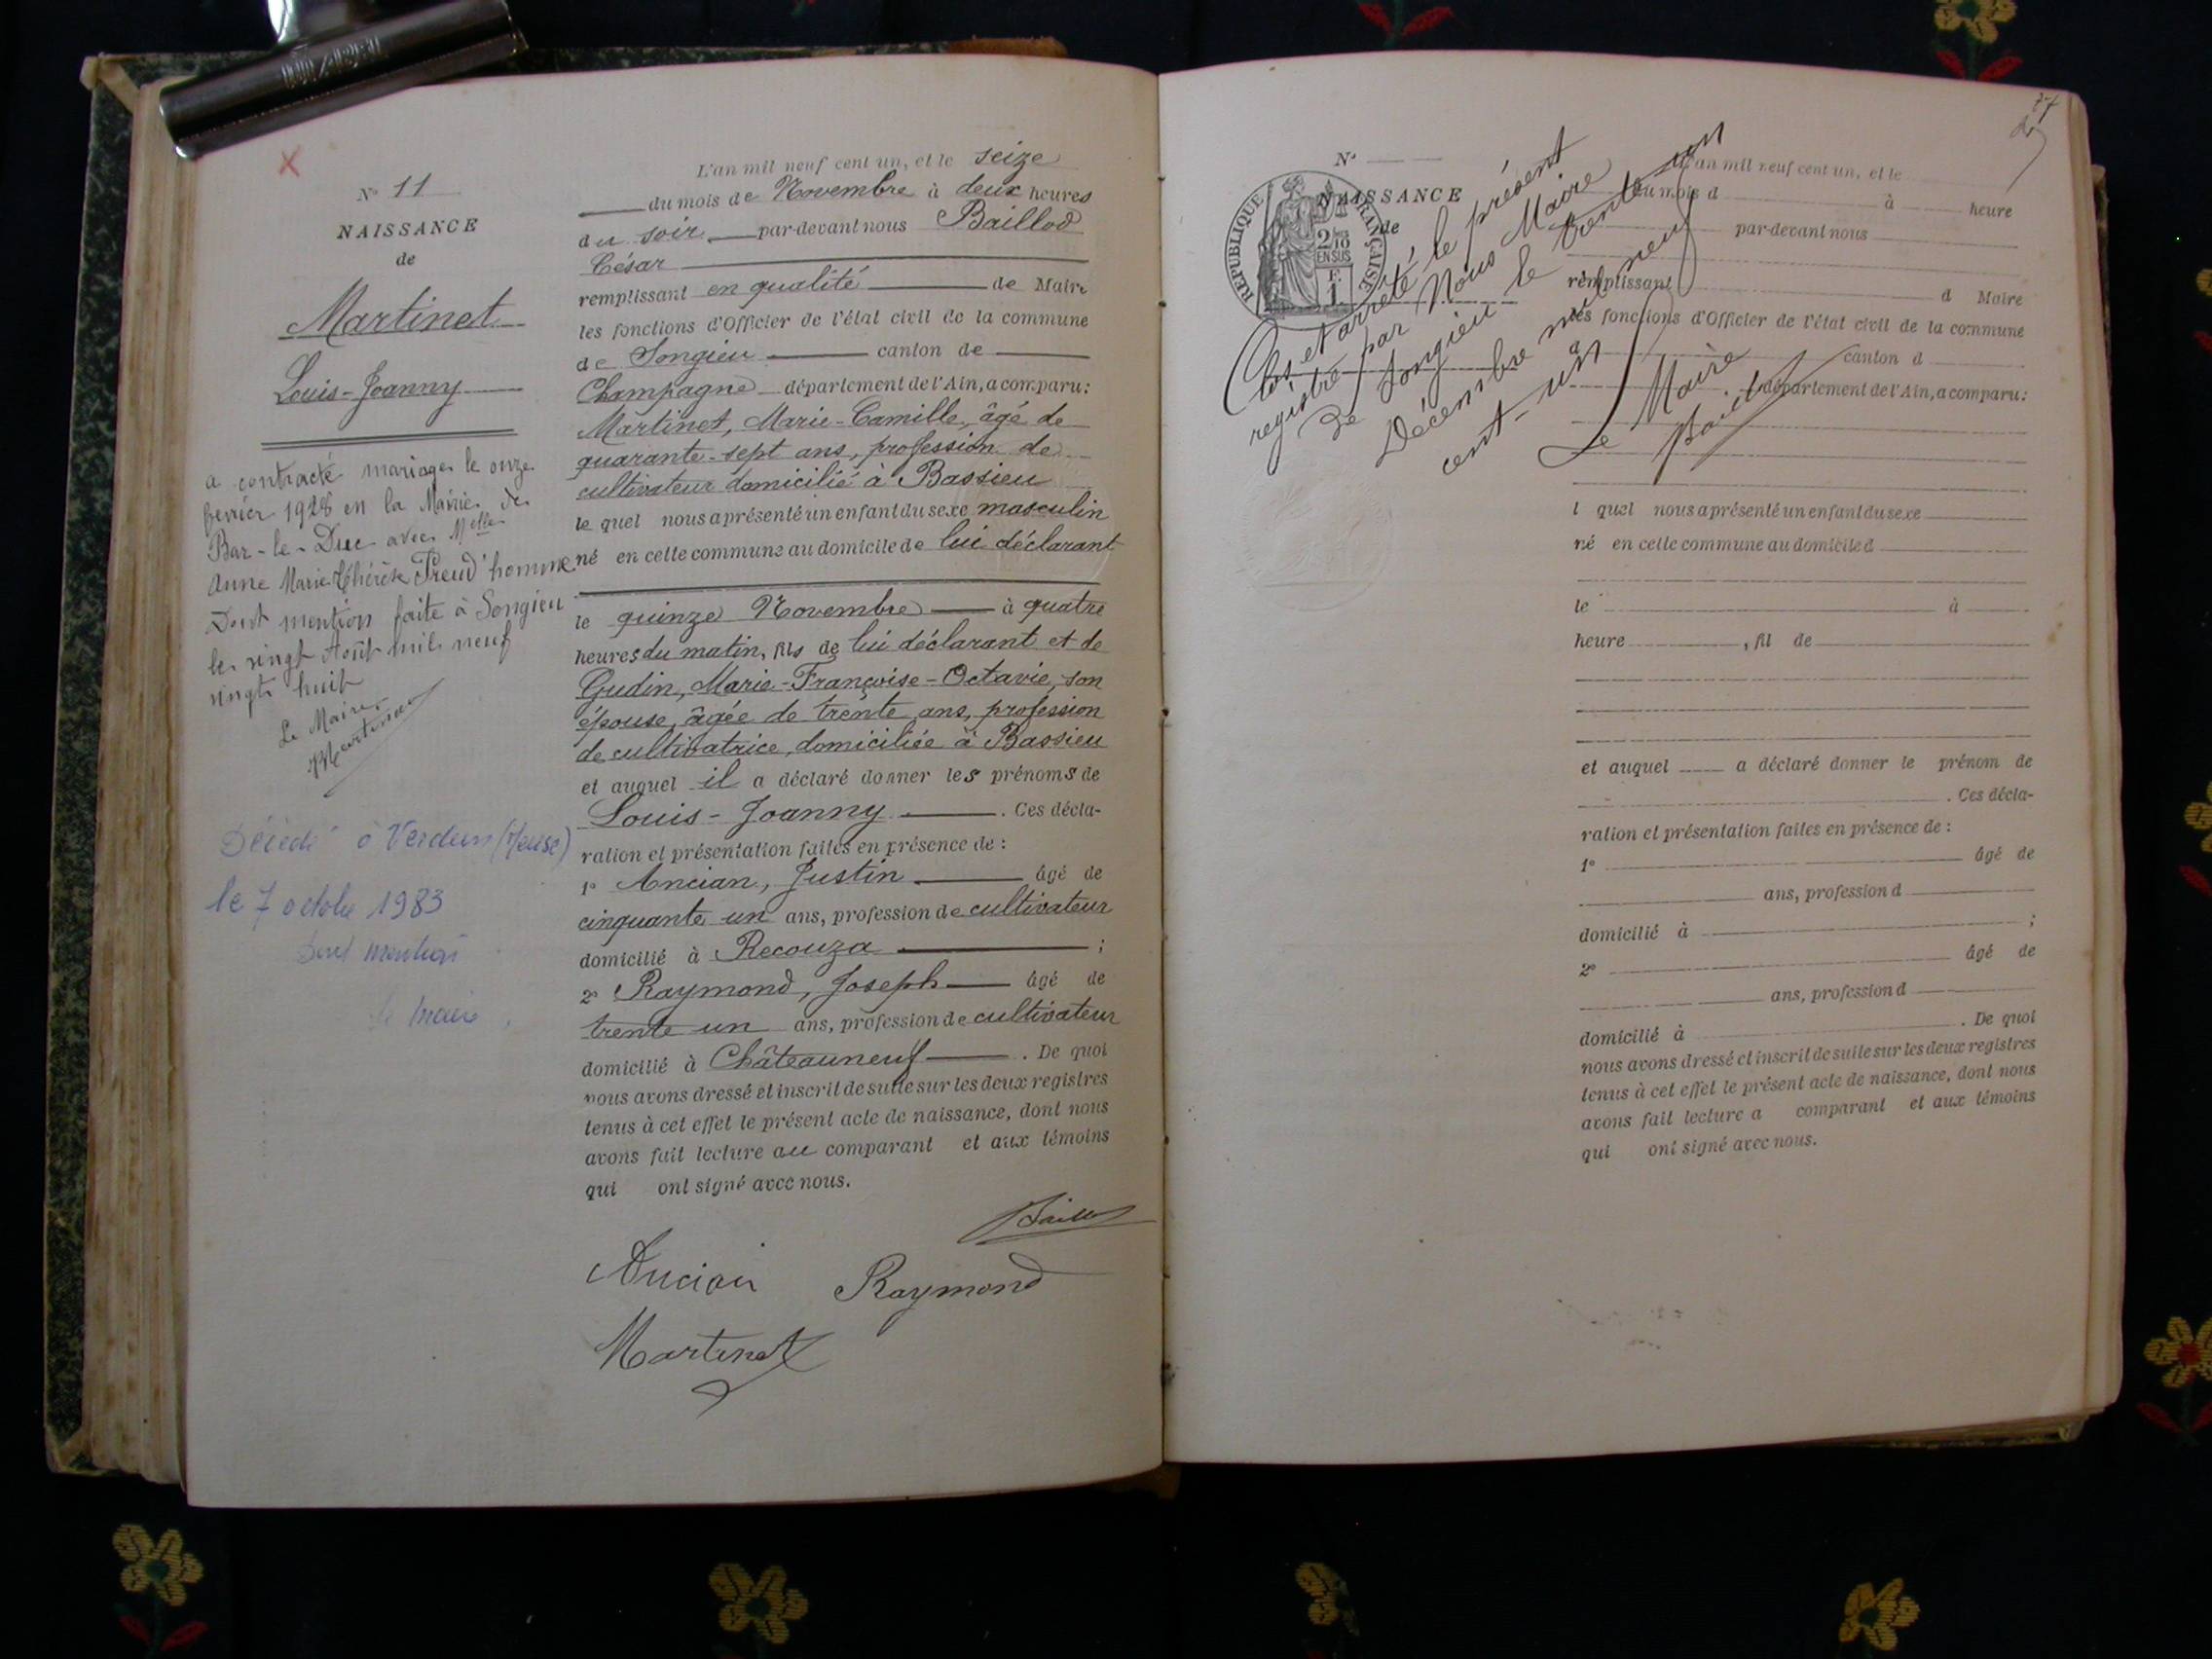 N° 11
NAISSANCE
de
Martinet
Louis-Joanny
a contracté mariage le onze
fevrier 1928 en la Mairie de
Bar-le-Duc avec Melle
Anne Marie Thérèse Preud'homme
Dont mention faite à Songieu
le vingt Août mil neuf
vingt huit
Le Maire
Martinet
Décédé à Verdun (Meuse)
le 7 octobre 1983
Dont mention
le maire,
L'an mil neuf cent un, et le seize
du mois de Novembre à deux heures
du soir par-devant nous Baillod
César
remplissant en qualité de Maire
les fonctions d'Officier de l'état civil de la commune
de Songieu canton de
Champagne département de l'Ain, a comparu:
Martinet, Marie-Camille, âgé de
quarante-sept ans, profession de
cultivateur domicilié à Bassieu
le quel nous a présenté un enfant du sexe masculin
né en cette commune au domicile de lui déclarant
le quinze Novembre à quatre
heures du matin, fils de lui déclarant et de
Gudin, Marie-Françoise-Octavie, son
épouse, âgée de trente ans, profession
de cultivatrice, domiciliée à Bassieu
et auquel il a déclaré donner les prénoms de
Louis-Joanny. Ces décla-
ration et présentation faites en présence de :
1° Ancian, Justin âgé de
cinquante un ans, profession de cultivateur
domicilié à Recouza ;
2° Raymond, Joseph âgé de
trente un ans, profession de cultivateur
domicilié à Châteauneuf. De quoi
nous avons dressé et inscrit de suite sur les deux registres
tenus à cet effet le présent acte de naissance, dont nous
avons fait lecture au comparant et aux témoins
qui ont signé avec nous.
Baillod
Ancian Raymond
Martinet
N°
NAISSANCE
de
RÉPUBLIQUE FRANÇAISE
2/10
EN SUS
F.
1.
Clos et arrêté le présent
registre par Nous Maire
de Songieu le trente-un
Décembre mil neuf
cent-un
Le Maire
Baillod
L'an mil neuf cent un, et le
du mois d à heure
par-devant nous
remplissant d Maire
les fonctions d'Officier de l'état civil de la commune
d canton d
département de l'Ain, a comparu:
l quel nous a présenté un enfant du sexe
né en cette commune au domicile d
le à
heure , fil de
et auquel a déclaré donner le prénom de
. Ces décla-
ration et présentation faites en présence de :
1° âgé de
ans, profession d
domicilié à ;
2° âgé de
ans, profession d
domicilié à . De quoi
nous avons dressé et inscrit de suite sur les deux registres
tenus à cet effet le présent acte de naissance, dont nous
avons fait lecture a comparant et aux témoins
qui ont signé avec nous.